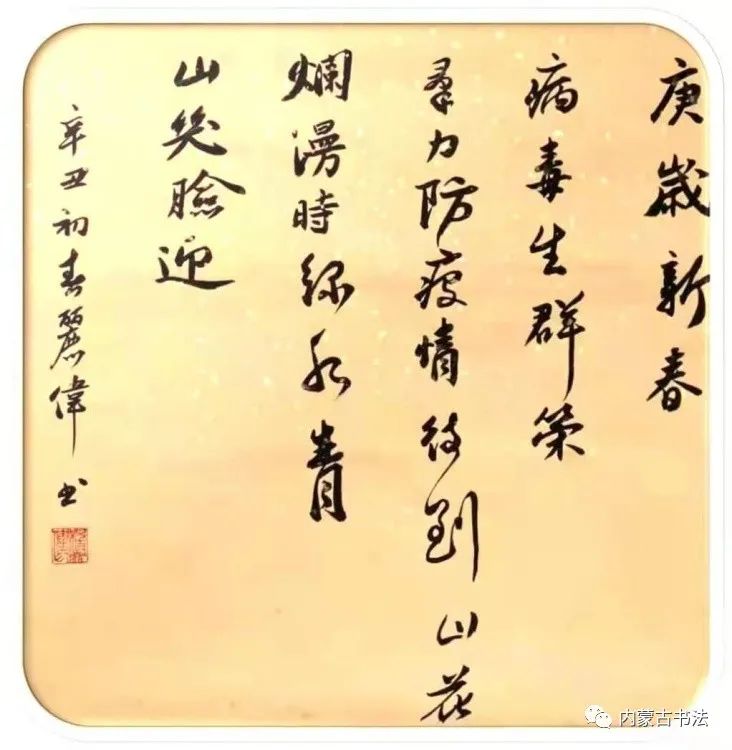 庚歲新春
病毒生群策
羣力防疫情待到山花
爛漫時綠水青
山笑臉迎
辛丑初春麗偉书
内蒙古书法